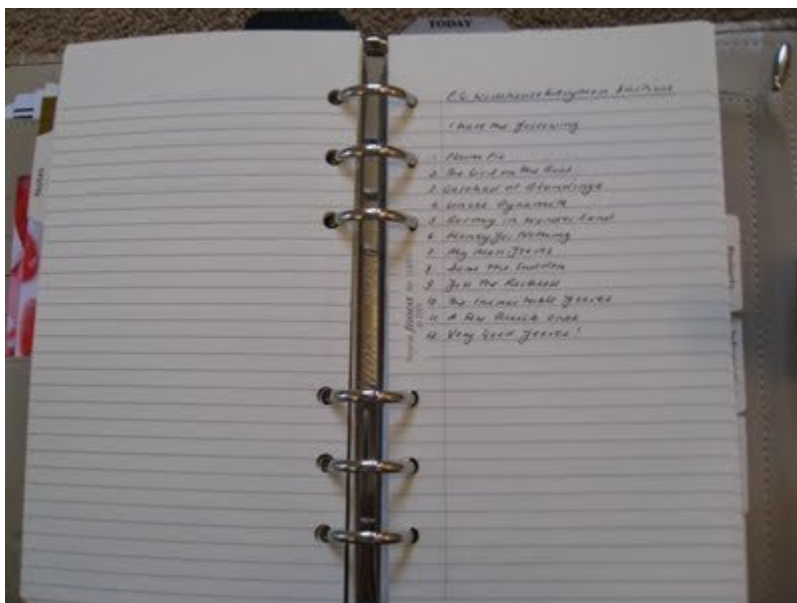 TODAY
P.G. Wodehouse Everyman Editions
I have the following
1. Plum Pie
2. The Girl on the Boat
3. Galahad at Blandings
4. Uncle Dynamite
5. Barmy in Wonderland
6. Money for Nothing
7. My Man Jeeves
8. Sam the Sudden
9. Jill the Reckless
10. The Inimitable Jeeves
11. A Few Quick Ones
12. Very Good Jeeves!
NOTES
filofax